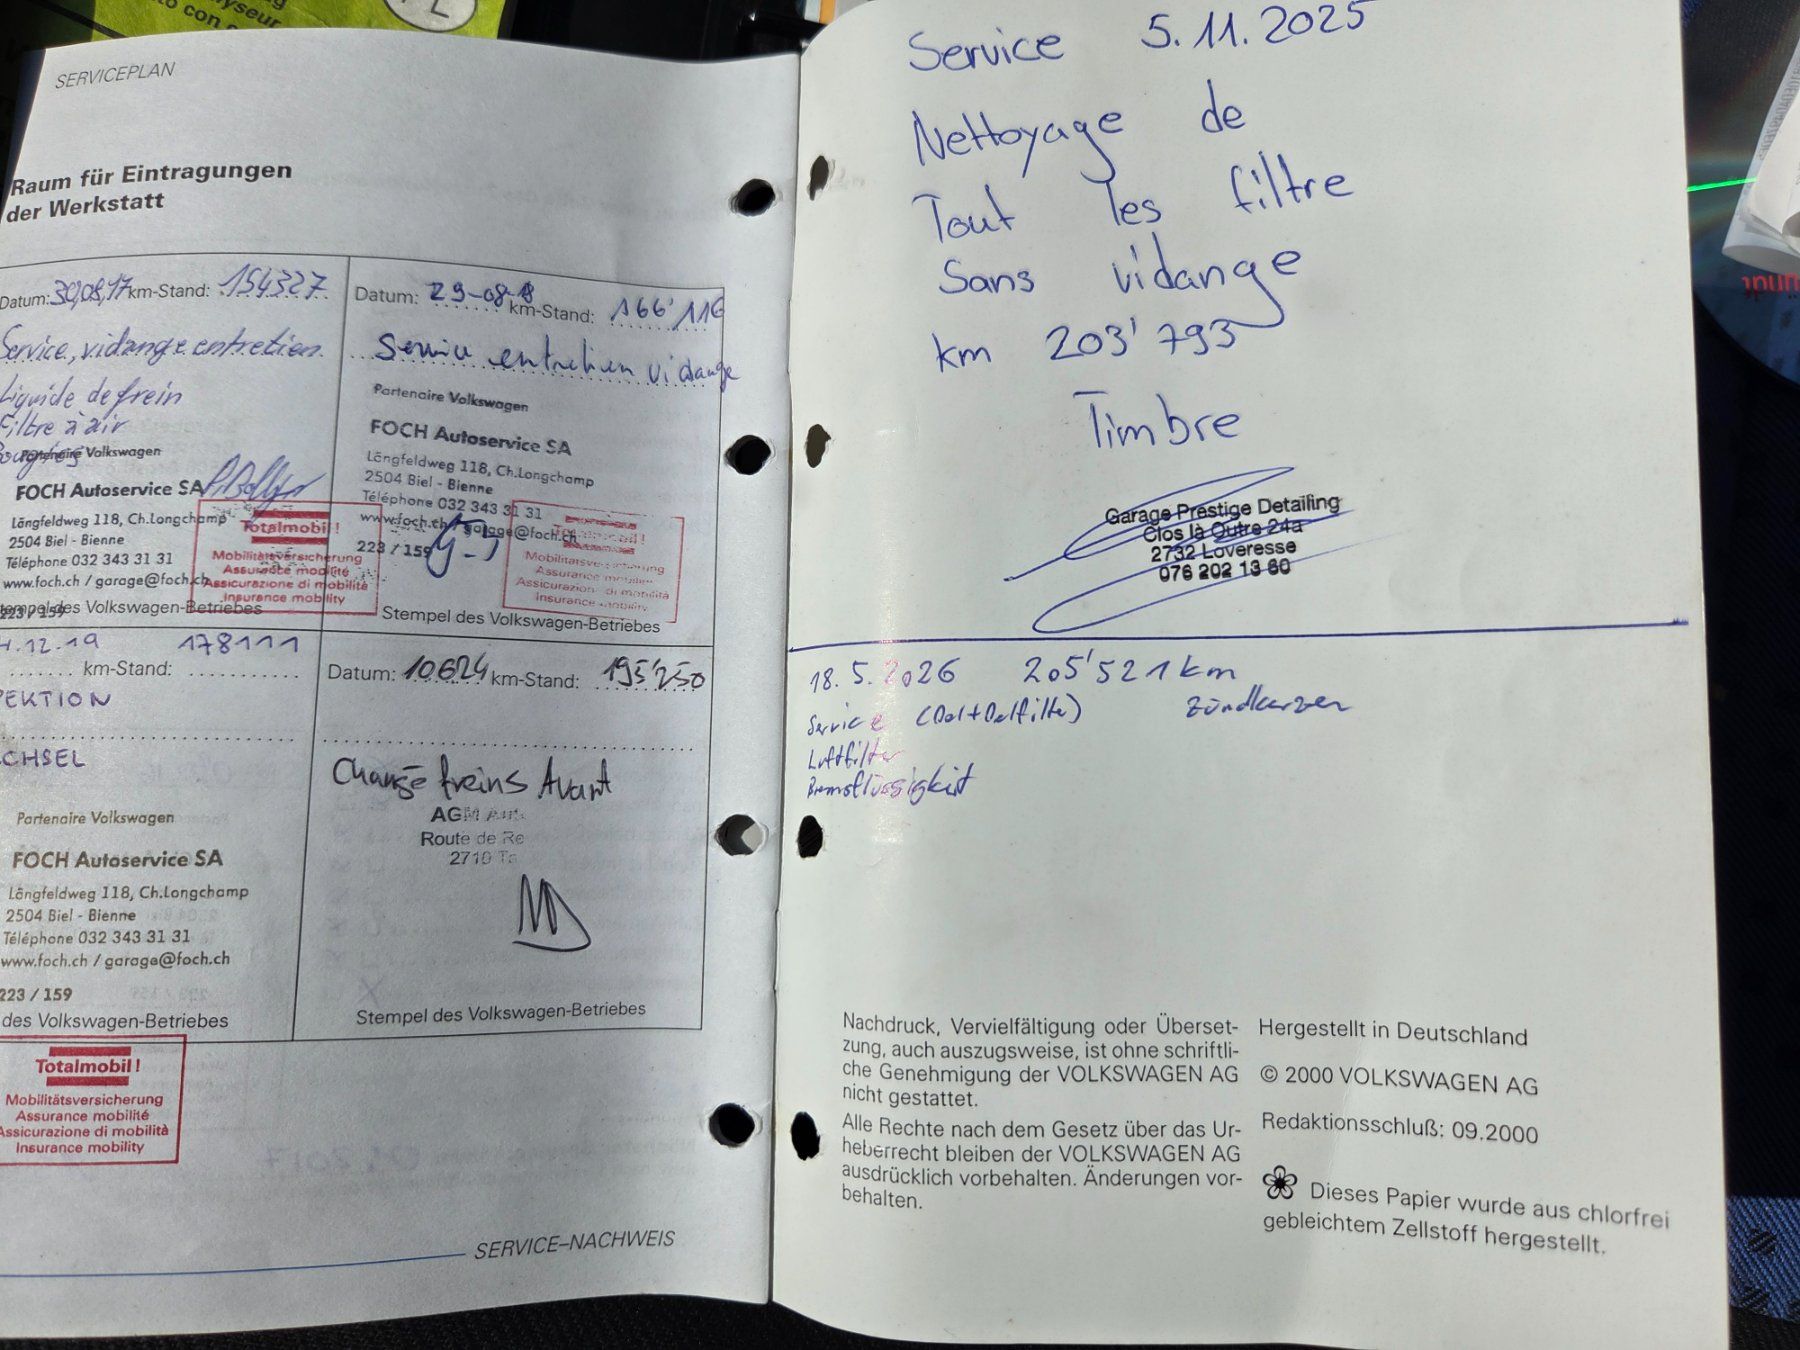 yseur
to con
SERVICEPLAN
Raum für Eintragungen
der Werkstatt
Datum: 30.08.17 km-Stand: 154327
Service, vidange entretien
Liquide de frein
Filtre à air
Bougies
Partenaire Volkswagen
FOCH Autoservice SA
Längfeldweg 118, Ch.Longchamp
2504 Biel - Bienne
Téléphone 032 343 31 31
www.foch.ch / garage@foch.ch
223 / 159
Stempel des Volkswagen-Betriebes
Totalmobil!
Mobilitätsversicherung
Assurance mobilité
Assicurazione di mobilità
Insurance mobility
Datum: 29-08-18 km-Stand: 166'116
Service entretien vidange
Partenaire Volkswagen
FOCH Autoservice SA
Längfeldweg 118, Ch.Longchamp
2504 Biel - Bienne
Téléphone 032 343 31 31
www.foch.ch garage@foch.ch
223 / 159
Mobilitätsversicherung
Assurance mobilité
Assicurazion di mobilità
Insurance mobility
Stempel des Volkswagen-Betriebes
.12.19 178111
km-Stand:
PEKTION
CHSEL
Partenaire Volkswagen
FOCH Autoservice SA
Längfeldweg 118, Ch.Longchamp
2504 Biel - Bienne
Téléphone 032 343 31 31
www.foch.ch / garage@foch.ch
223 / 159
des Volkswagen-Betriebes
Totalmobil!
Mobilitätsversicherung
Assurance mobilité
Assicurazione di mobilità
Insurance mobility
Datum: 10624 km-Stand: 195'250
Change freins Avant
AGM
Route de Re
2710 Ta
Stempel des Volkswagen-Betriebes
SERVICE–NACHWEIS
Service 5.11.2025
Nettoyage de
Tout les filtre
Sans vidange
km 203'793
Timbre
Garage Prestige Detailing
Clos là Outre 24a
2732 Loveresse
076 202 13 60
18.5.2026 205'521km
Service (Oel+Oelfilter) Zündkerzen
Luftfilter
Bremsflüssigkeit
Nachdruck, Vervielfältigung oder Überset-
zung, auch auszugsweise, ist ohne schriftli-
che Genehmigung der VOLKSWAGEN AG
nicht gestattet.
Alle Rechte nach dem Gesetz über das Ur-
heberrecht bleiben der VOLKSWAGEN AG
ausdrücklich vorbehalten. Änderungen vor-
behalten.
Hergestellt in Deutschland
© 2000 VOLKSWAGEN AG
Redaktionsschluß: 09.2000
Dieses Papier wurde aus chlorfrei
gebleichtem Zellstoff hergestellt.